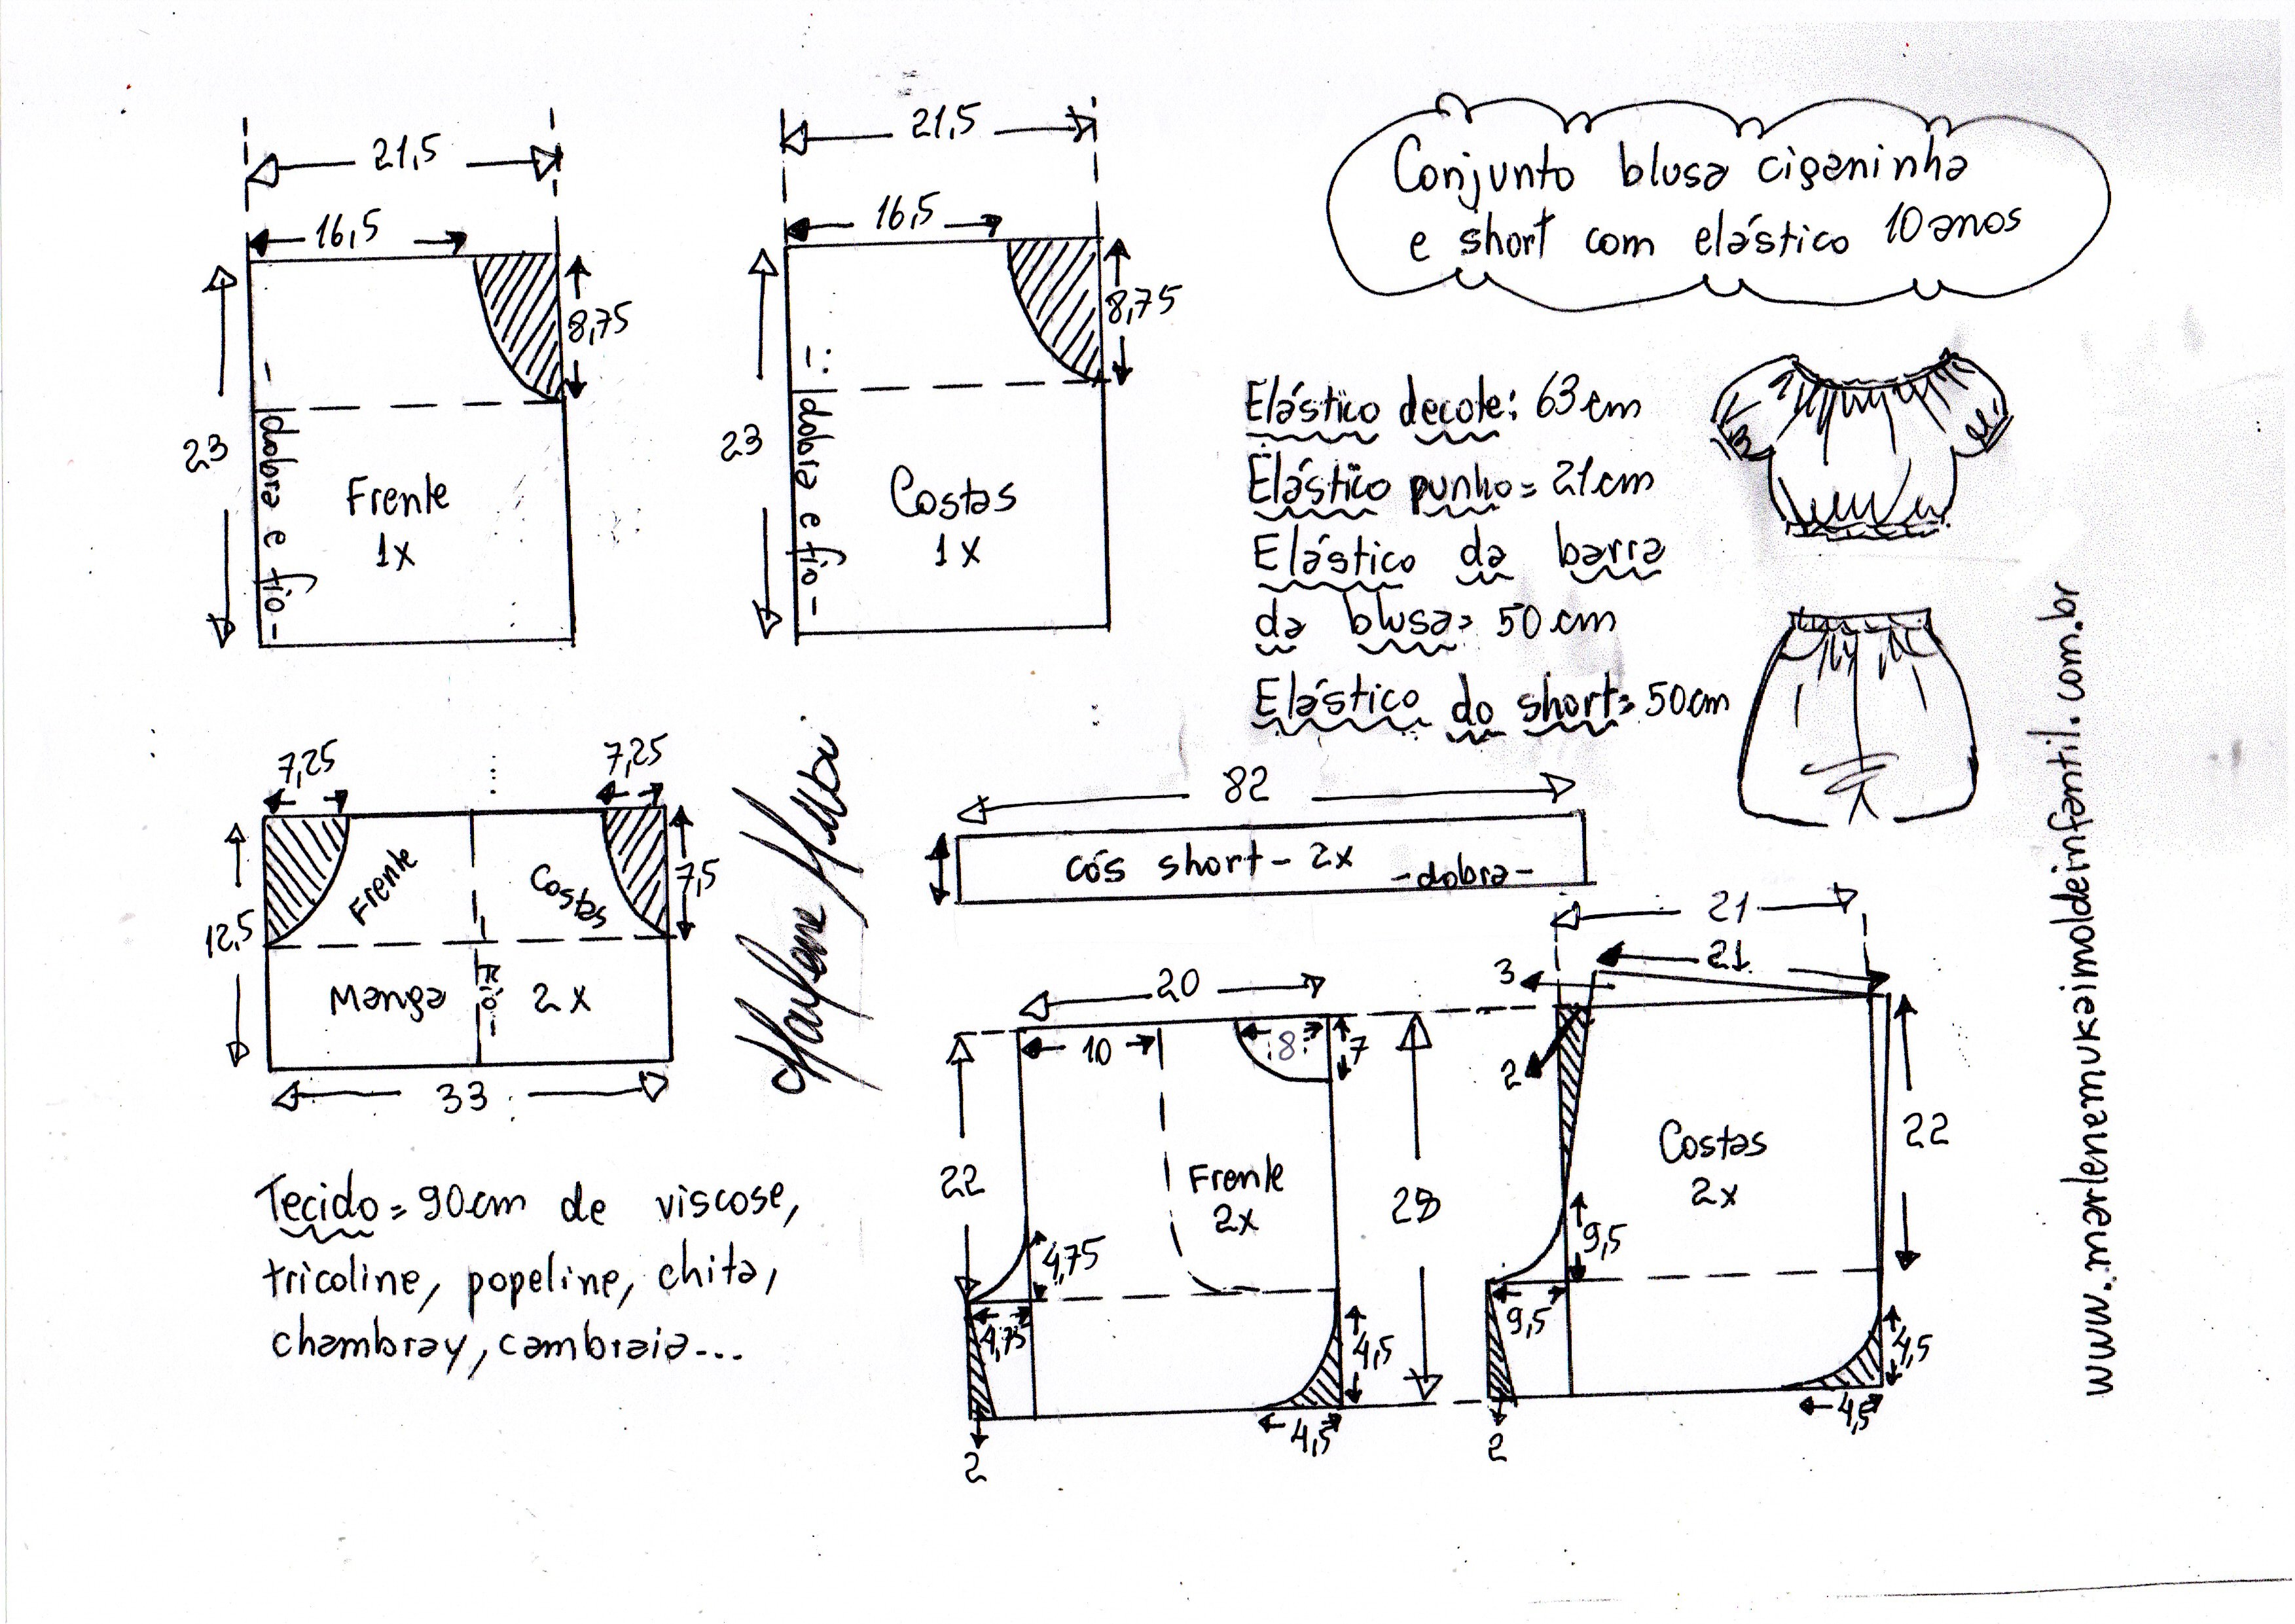 Conjunto blusa ciganinha
e short com elástico 10 anos
21,5
16,5
8,75
23
dobra e fio
Frente
1x
21,5
16,5
8,75
23
dobra e fio
Costas
1x
Elástico decote: 63 cm
Elástico punho = 21 cm
Elástico da barra
da blusa = 50 cm
Elástico do short = 50 cm
7,25
7,25
Frente
Costas
7,5
12,5
Manga
fio
2x
33
82
cós short - 2x
-dobra-
20
10
8
7
22
Frente
2x
28
4,75
4,75
4,5
4,5
2
21
21
3
2
Costas
2x
22
9,5
9,5
4,5
4,5
2
Tecido = 90cm de viscose,
tricoline, popeline, chita,
chambray, cambraia...
www.marlenemukaimoldeinfantil.com.br